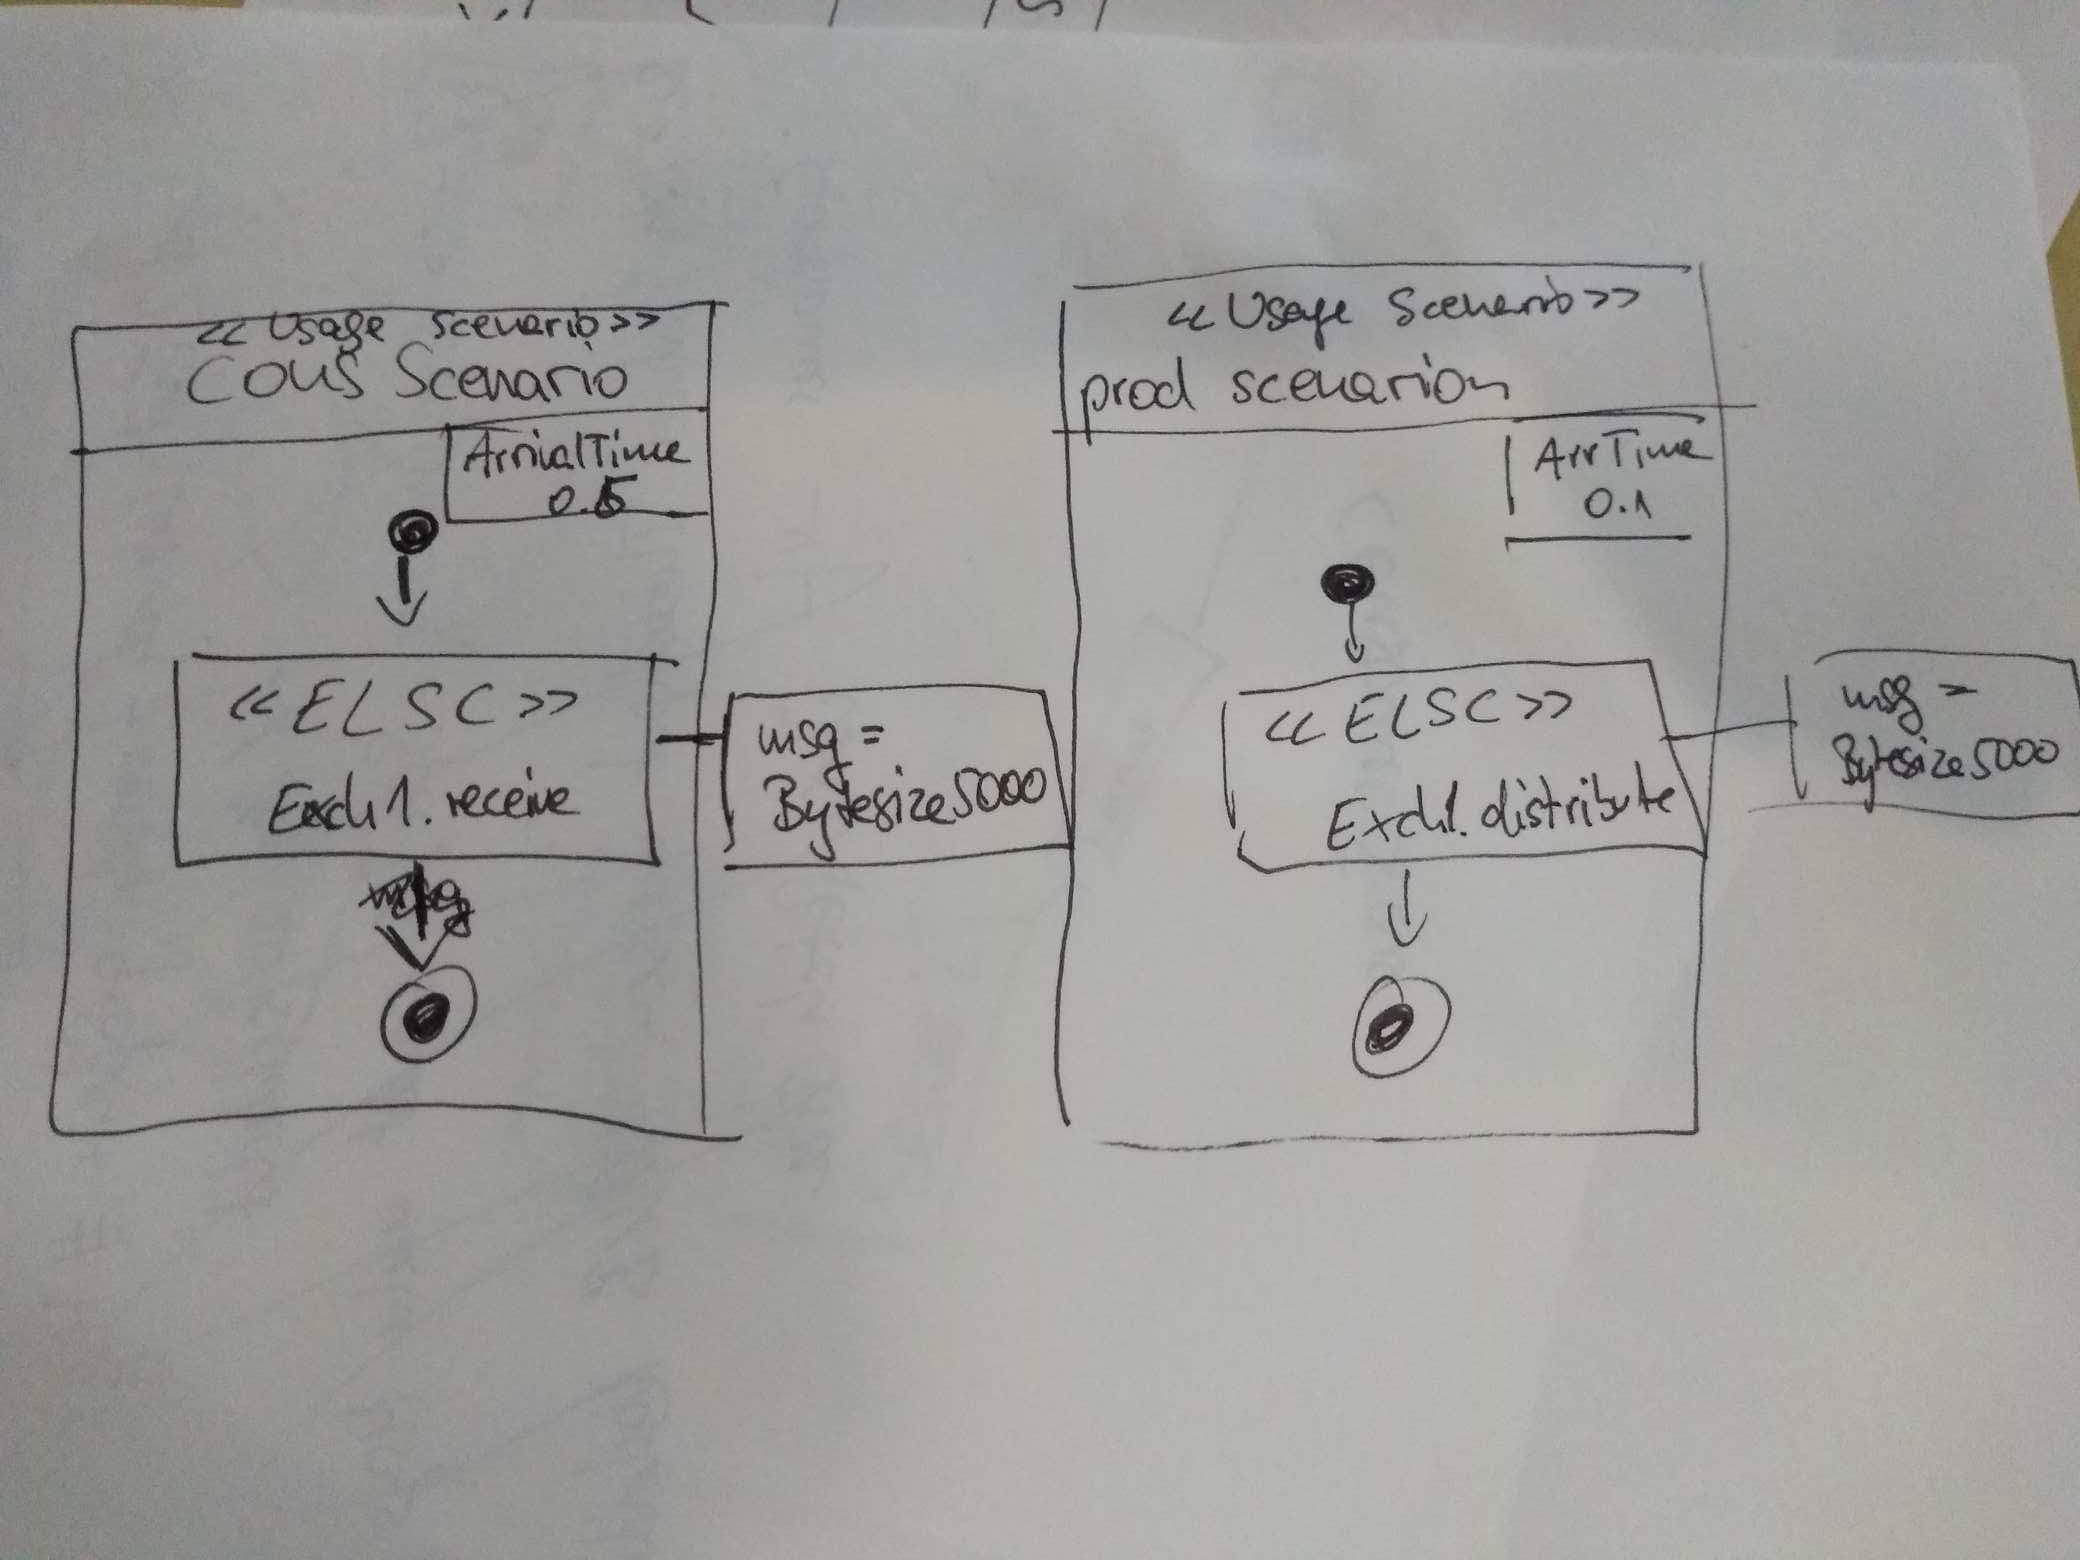 <<Usage Scenario>>
Cons Scenario
ArrivalTime
0.5
<<ELSC>>
Exch1.receive
msg =
Bytesize5000
<<Usage Scenario>>
prod scenarion
ArrTime
0.1
<<ELSC>>
Exch1.distribute
msg =
Bytesize5000